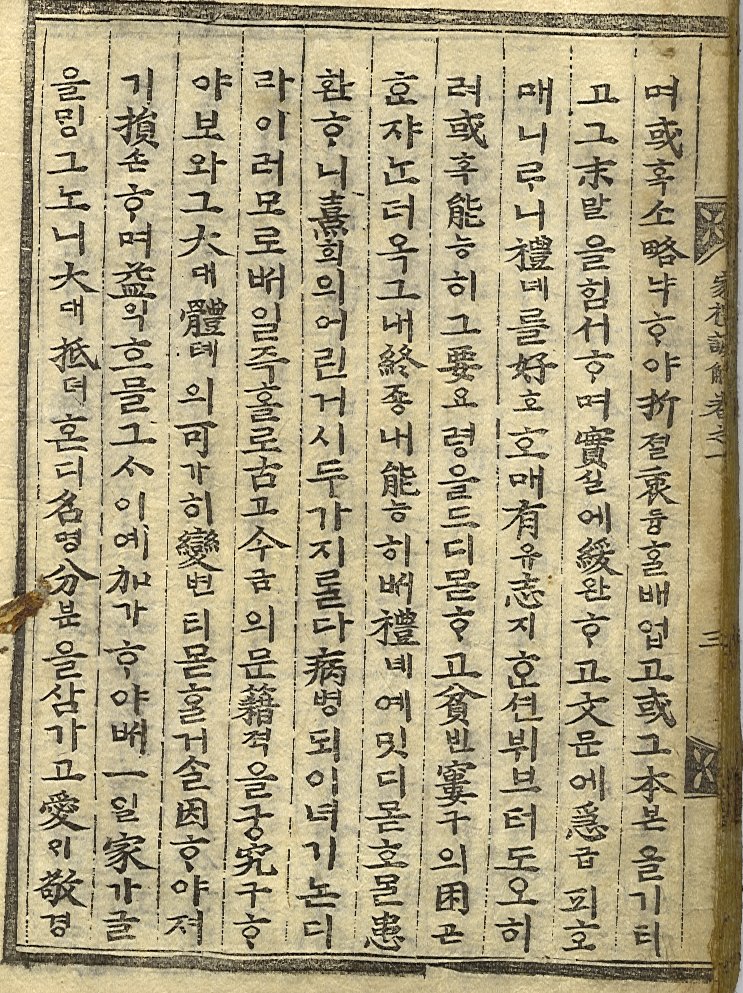 며或혹소略냐ᄒᆞ야折졀衷듕ᄒᆞᆯ배업고或그本본을기티
고그末말을힘서ᄒᆞ며實실에緩완ᄒᆞ고文문에急급피호
매니ᄅᆞ니禮녜를好호호매有유志지ᄒᆞᆫ션븨브터도오히
려或혹能능히그要요령을드디몯ᄒᆞ고貧빈窶구의困곤
ᄒᆞᆫ쟈ᄂᆞᆫ더옥그내終죵내能능히ᄡᅥ禮녜예밋디몯호믈患
환ᄒᆞ니熹희의어린거시두가지ᄅᆞᆯ다病병되이녀기ᄂᆞᆫ디
라이러모로ᄡᅥ일즉ᄒᆞᆯ로古고今금의문籍젹을궁究구ᄒᆞ
야보와그大대體톄의可가히變변티몯ᄒᆞᆯ거슬因ᄒᆞ야져
기損손ᄒᆞ며益익흐믈그ᄉᆞ이예加가ᄒᆞ야ᄡᅥ一일家가글
을ᄆᆡᆼ그노니大대抵뎌ᄒᆞᆫ디名명分분을삼가고愛ᄋᆡ敬경
家禮諺解卷之一
三